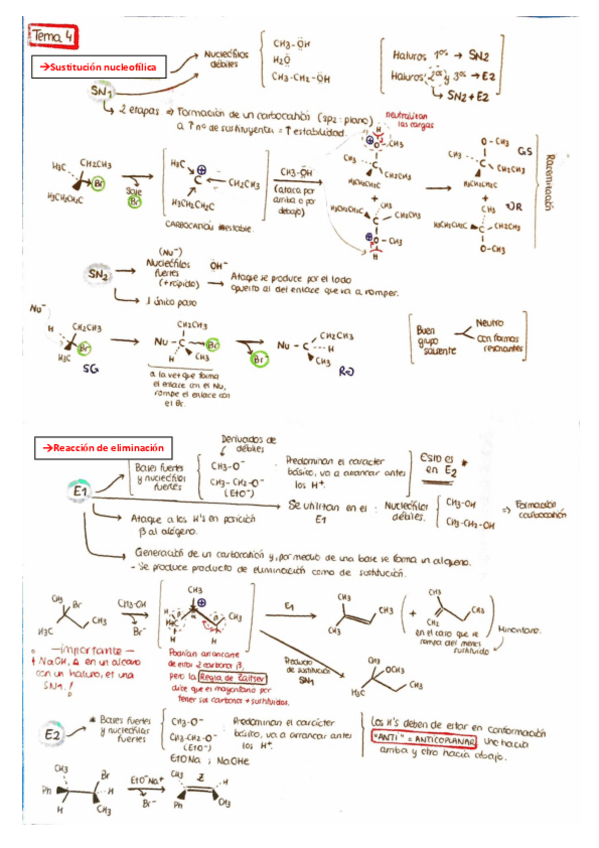 Tema 4
→Sustitución nucleofílica
SN1
Nucleófilos
débiles
CH3-ÖH
H2Ö
CH3-CH2-ÖH
Haluros 1ºs → SN2
Haluros 2ºs y 3ºs → E2
↳ SN2 + E2
2 etapas ⇒ Formación de un carbocatión (sp2: plano)
a ↑ nº de sustituyentes = ↑ estabilidad.
neutralizan
las cargas
H3C
CH2CH3
Br
H3CH2CH2C
Sale
Br
H3C
⊕
C
CH2CH3
H3CH2CH2C
CARBOCATIÓN estable.
CH3-ÖH
(ataca por
arriba o por
debajo)
H
O-CH3
CH3
C
CH2CH3
H3CH2CH2C
+
H3CH2CH2C
CH2CH3
C
CH3
O-CH3
H
O-CH3
CH3
C
CH2CH3
H3CH2CH2C
+
CH3
H3CH2CH2C
C
CH2CH3
O-CH3
Racemización
SN2
(Nu⁻)
Nucleófilos
fuertes
(+rápido)
ÖH⁻
Ataque se produce por el lado
opuesto al del enlace que va a romper.
1 único paso
Nu⁻
H
CH2CH3
Br
H3C
Nu
CH2CH3
C
Br
H
CH3
Br⁻
Nu - C
CH2CH3
H
CH3
a la vez que forma
el enlace con el Nu,
rompe el enlace con
el Br.
Buen
grupo
saliente
Neutro
con formas
resonantes
→Reacción de eliminación
E1
Bases fuertes
y nucleófilos
fuertes
Derivados de
débiles
CH3-O⁻
CH3-CH2-O⁻
(EtO⁻)
Predominan el carácter
básico, va a arrancar antes
los H⁺.
Esto es *
en E2
Se utilizan en el :
E1
Nucleófilos
débiles.
CH3-OH
CH3-CH2-OH
⇒ Formación
carbocatión
Ataque a los H's en posición
β al alógeno.
Generación de un carbocatión y, por medio de una base se forma un alqueno.
- Se produce producto de eliminación como de sustitución.
CH3
Br
H3C
CH3
CH3-OH
Br⁻
CH3
⊕
β
H
CH3
E1
CH3
CH3
CH3
+
CH3
CH2
CH3
en el caso que se
rompa del menos
sustituido
Minoritario.
-importante-
NaOH, Δ en un alcano
con un haluro, es una
SN1!
Podrían arrancarse
de estos 2 carbonos β,
pero la Regla de Zaitsev
dice que es mayoritario por
tener sus carbonos + sustituidos.
Producto
de sustitución
SN1
CH3
OCH3
H3C
CH3
E2
* Bases fuertes
y nucleófilos
fuertes
CH3-O⁻
CH3-CH2-O⁻
(EtO⁻)
EtONa ; NaOHe
Predominan el carácter
básico, va a arrancar antes
los H⁺.
Los H's deben de estar en conformación
"ANTI" = ANTICOPLANAR Uno hacia
arriba y otro hacia abajo.
CH3
Br
Ph
H
H
CH3
EtO⁻Na⁺
Br⁻
CH3
Z
H
Ph
CH3